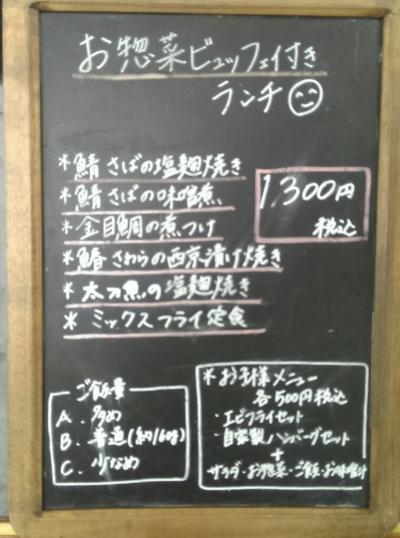 お惣菜ビュッフェ付き
ランチ
*鯖 さばの塩麹焼き
*鯖 さばの味噌煮
*金目鯛の煮つけ
*鰆 さわらの西京漬け焼き
*太刀魚の塩麹焼き
*ミックスフライ定食
1,300円
税込
ご飯量
A. 多め
B. 普通(約160g)
C. 少なめ
*お子様メニュー
各500円税込
・エビフライセット
・自家製ハンバーグセット
+
サラダ・お惣菜・ご飯・お味噌汁